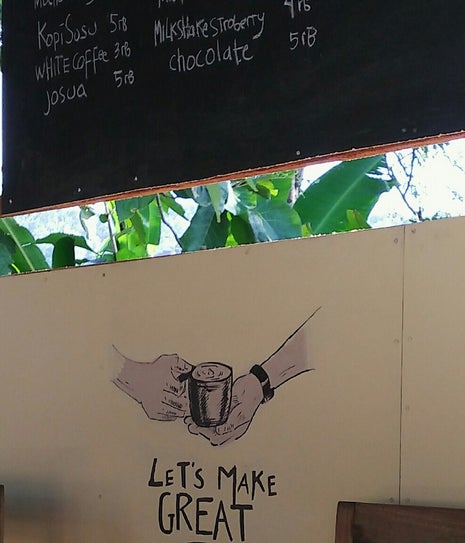 Kopi Susu 5rB
WHITE COFFee 3rB
Josua 5rB
4rB
MilkSHake STroberry
chocolate 5rB
LeT's MaKe
GREAT